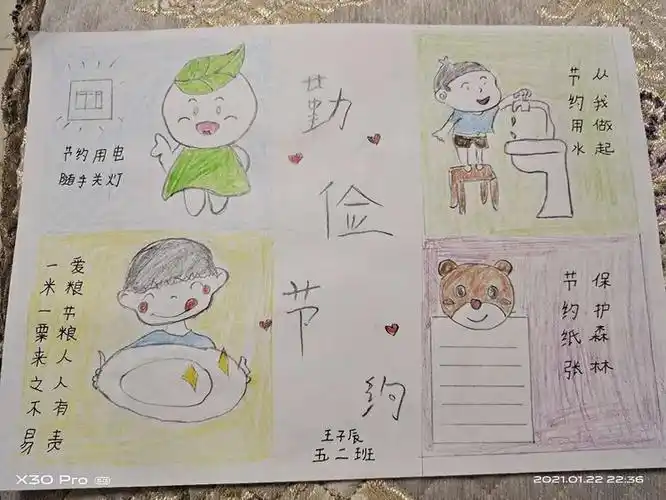 勤
俭
节
约
节约用电
随手关灯
从我做起
节约用水
爱粮节粮人人有责
一米一粟来之不易
保护森林
节约纸张
王子辰
五二班
X30 Pro 5G
2021.01.22 22:36